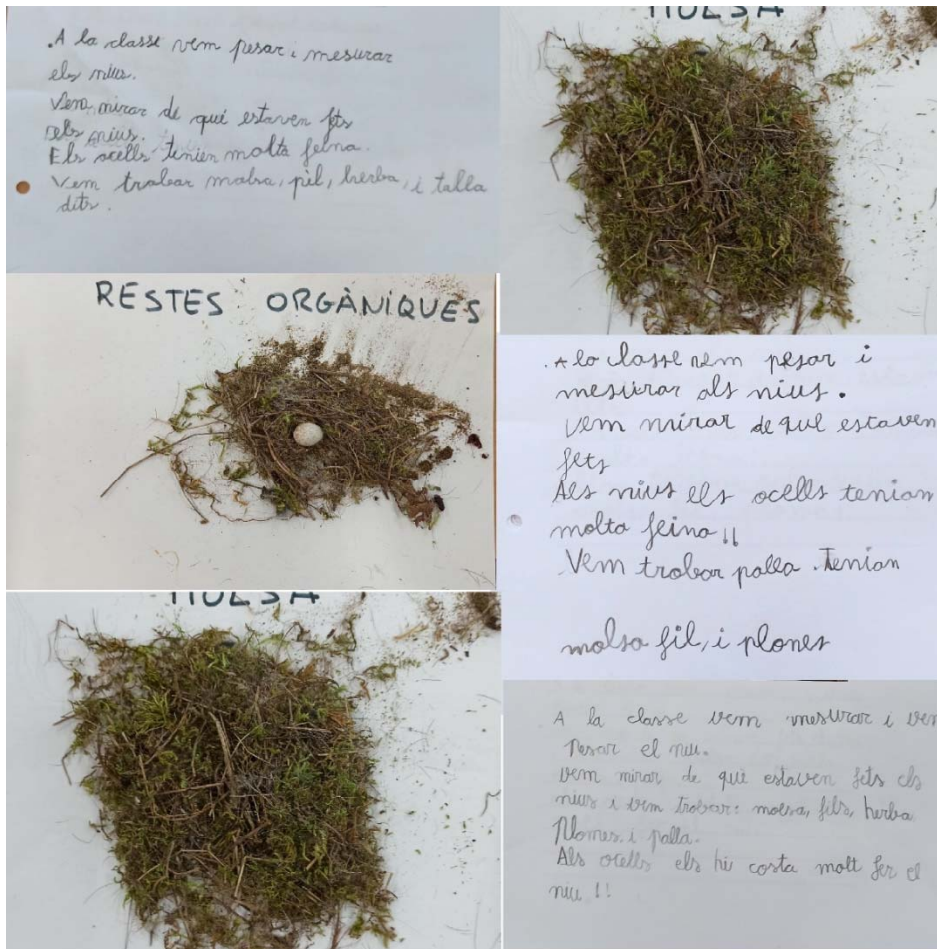 .A la classe vem pesar i mesurar
els nius.
Vem mirar de què estaven fets
els nius.
Els ocells tenien molta feina.
Vem trobar molsa, pèl, herba, i talla
dits.
MOLSA
RESTES ORGÀNIQUES
. A la classe vem pesar i
mesurar als nius.
Vem mirar de que estaven
fets
Als nius els ocells tenian
molta feina !!
Vem trobar palla. Tenian
molsa fil, i plones
MOLSA
A la classe vem mesurar i vem
pesar el niu.
Vem mirar de què estaven fets els
nius i vem trobar: molsa, fils, herba
Plomes, i palla.
Als ocells els hi costa molt fer el
niu !!